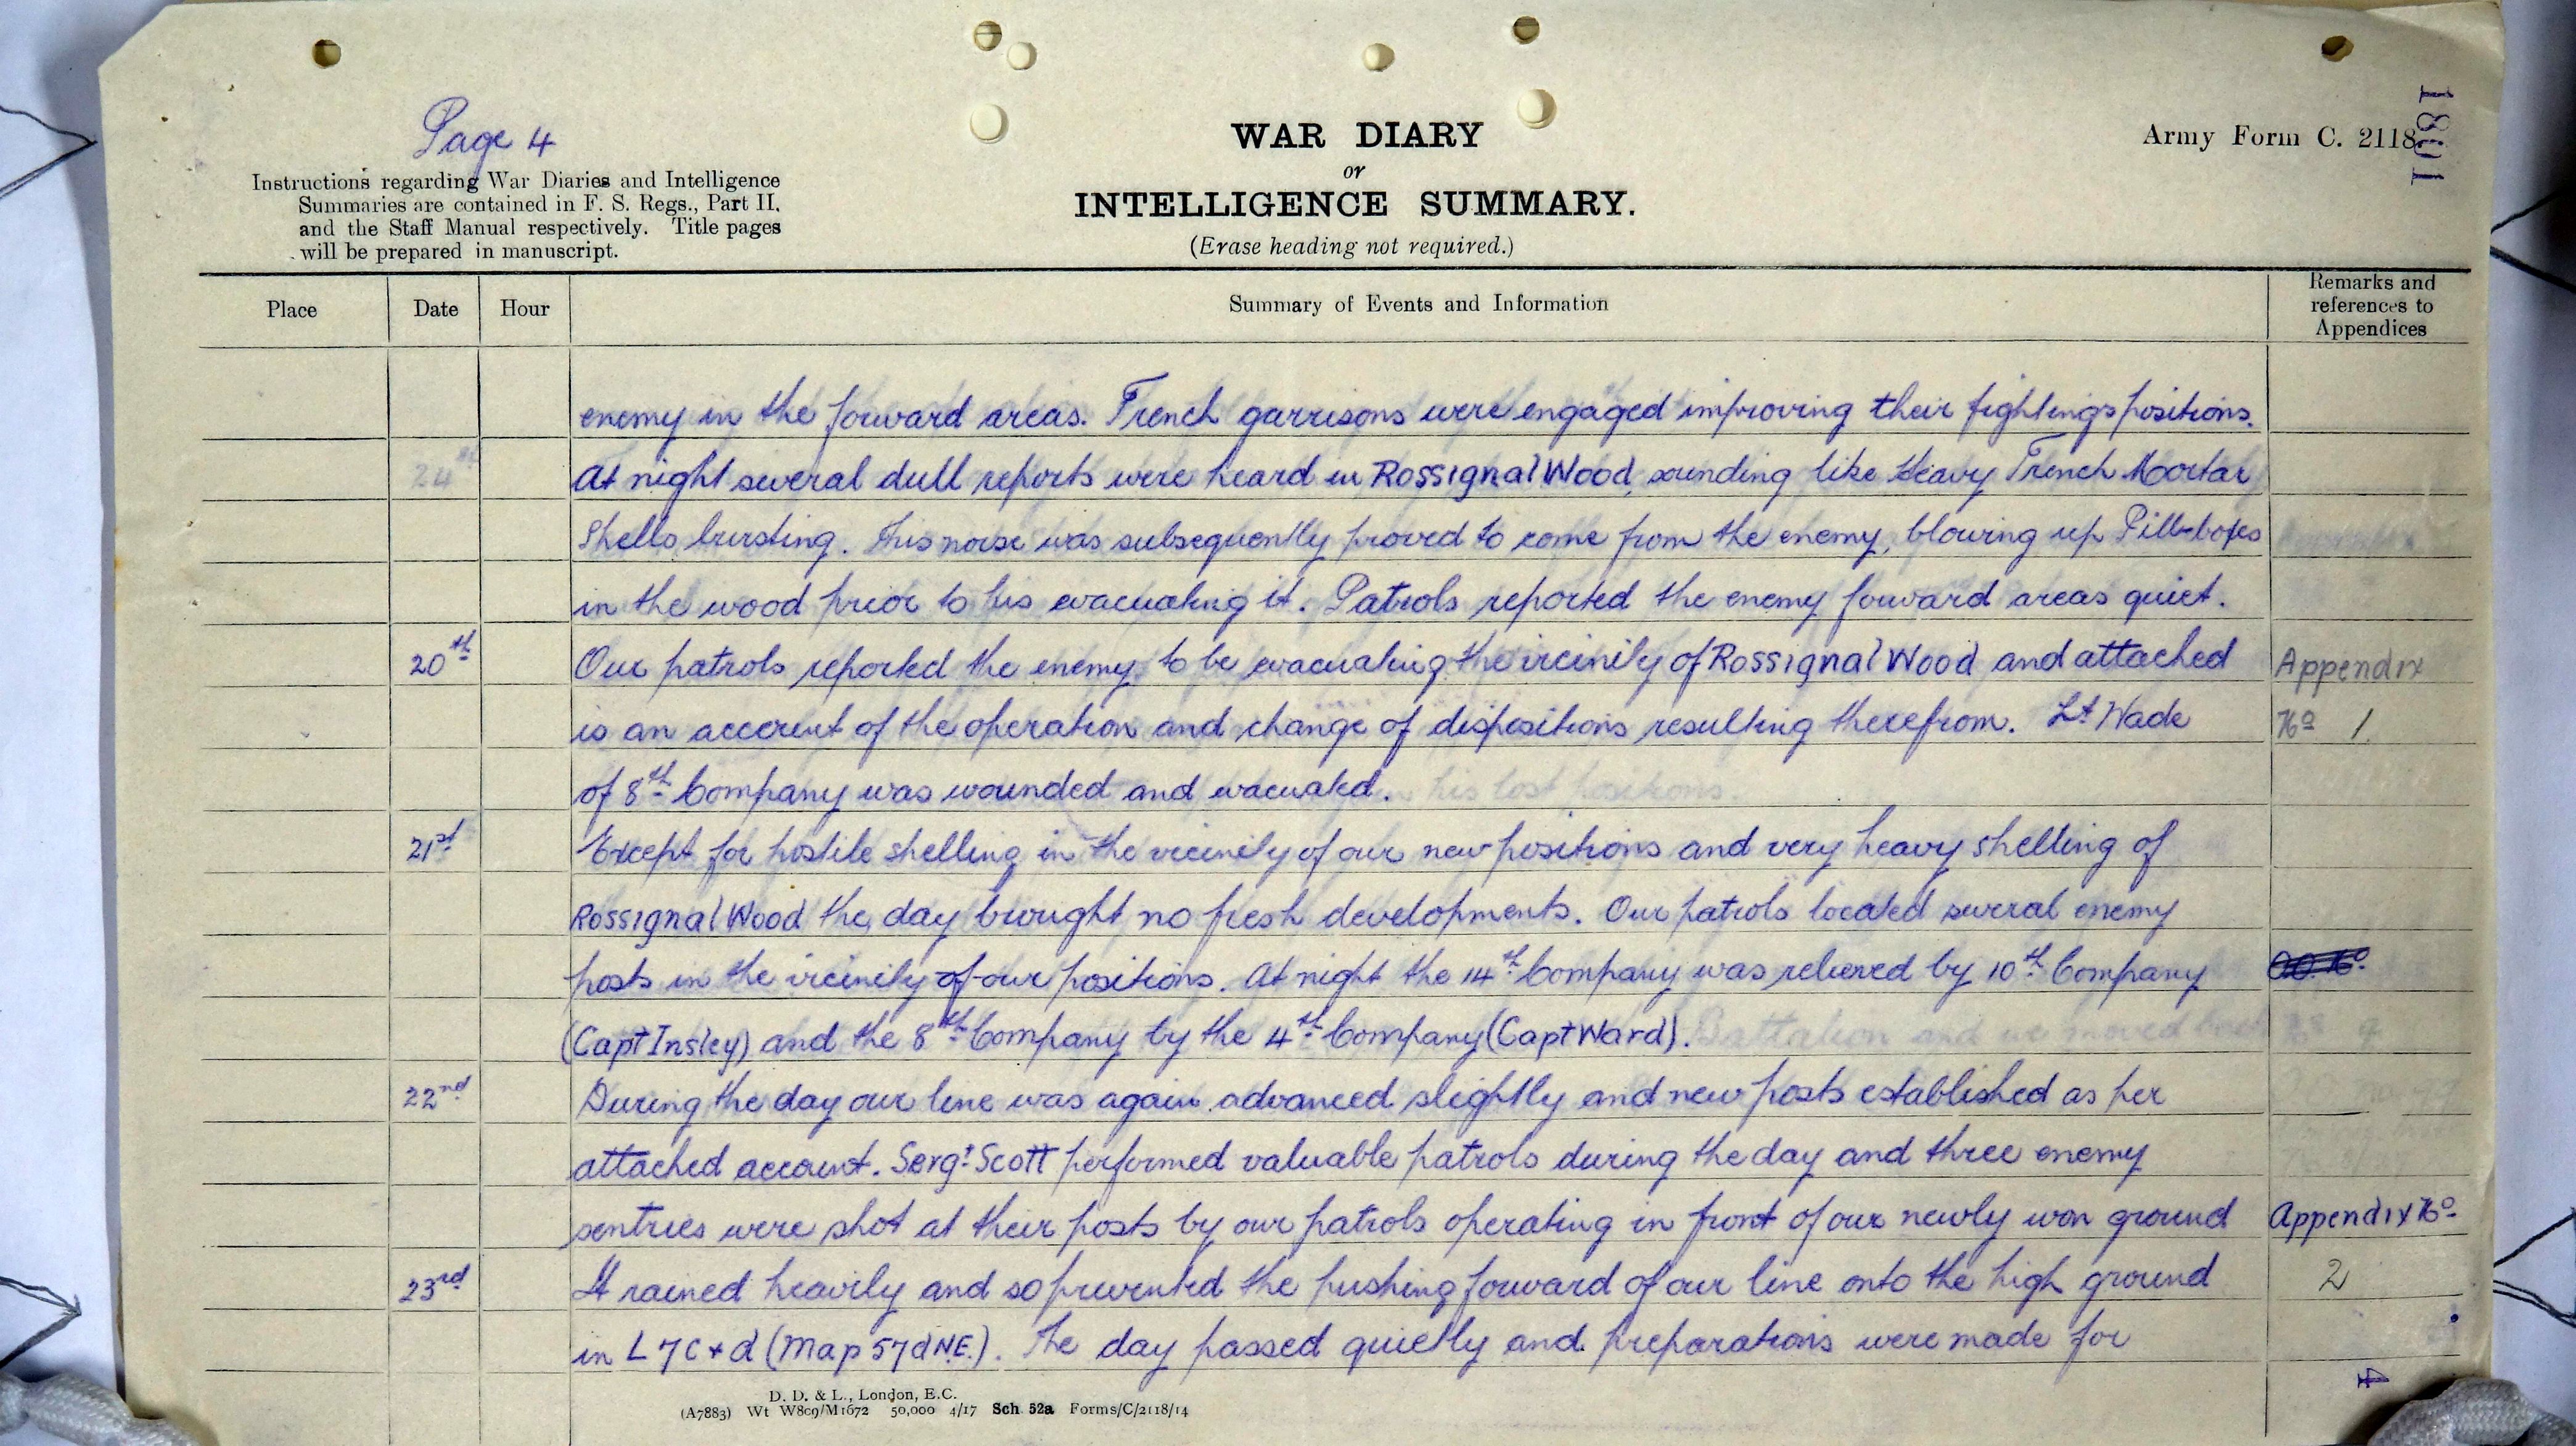 Page 4
Instructions regarding War Diaries and Intelligence
Summaries are contained in F. S. Regs., Part II.
and the Staff Manual respectively. Title pages
will be prepared in manuscript.
WAR DIARY
or
INTELLIGENCE SUMMARY.
(Erase heading not required.)
Army Form C. 2118
1081
Place Date Hour Summary of Events and Information Remarks and references to Appendices
enemy in the forward areas. Trench garrisons were engaged improving their fighting positions.
At night several dull reports were heard in Rossignal Wood, sounding like Heavy Trench Mortar
Shells bursting. This noise was subsequently proved to come from the enemy, blowing up Pill-boxes
in the wood prior to his evacuating it. Patrols reported the enemy forward areas quiet.
20th Our patrols reported the enemy to be evacuating the vicinity of Rossignal Wood and attached Appendix
is an account of the operation and change of dispositions resulting therefrom. Lt Wade No 1.
of 8th Company was wounded and evacuated.
21st Except for hostile shelling in the vicinity of our new positions and very heavy shelling of
Rossignal Wood the day brought no fresh developments. Our patrols located several enemy
posts in the vicinity of our positions. At night the 14th Company was relieved by 10th Company
(Capt Insley) and the 8th Company by the 4th Company (Capt Ward).
22nd During the day our line was again advanced slightly and new posts established as per
attached account. Sergt Scott performed valuable patrols during the day and three enemy
sentries were shot at their posts by our patrols operating in front of our newly won ground Appendix No
23rd It rained heavily and so prevented the pushing forward of our line onto the high ground 2
in L 7 C & d (Map 57d N.E.). The day passed quietly and preparations were made for
4
D. D. & L., London, E.C.
(A7883) Wt W809/M1672 50,000 4/17 Sch 52a Forms/C/2118/14